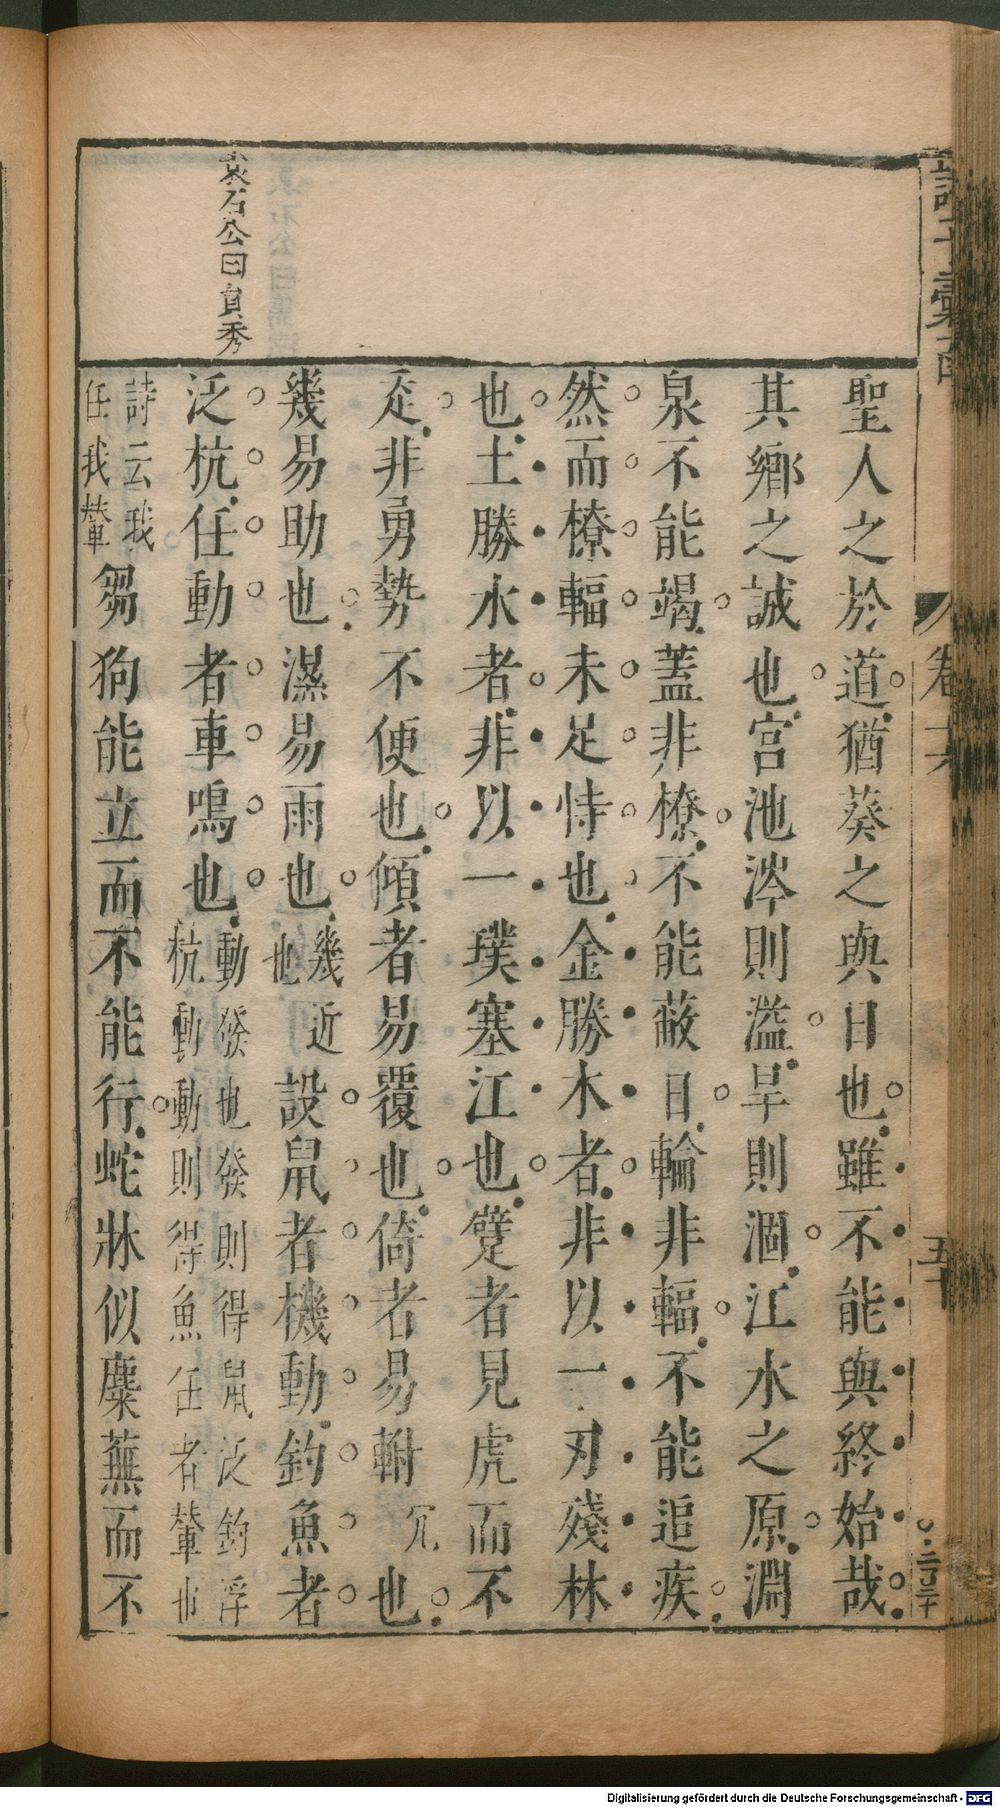 聖人之於道猶葵之與日也雖不能與終始哉
其鄉之誠也宮池涔則溢旱則涸江水之原淵
泉不能竭蓋非橑不能蔽日輪非輻不能追疾
然而橑輻未足恃也金勝木者非以一刃殘林
也土勝水者非以一璞塞江也躄者見虎而不
走非勇勢不便也傾者易覆也倚者易軵冗也
幾易助也濕易雨也幾近也設鼠者機動釣魚者
泛杭任動者車鳴也動發也發則得鼠泛釣浮杭動動則得魚任者輦也
詩云我任我輦芻狗能立而不能行蛇牀似麋蕪而不
袁石公曰貟秀
卷十六
五十
Digitalisierung gefördert durch die Deutsche Forschungsgemeinschaft - DFG